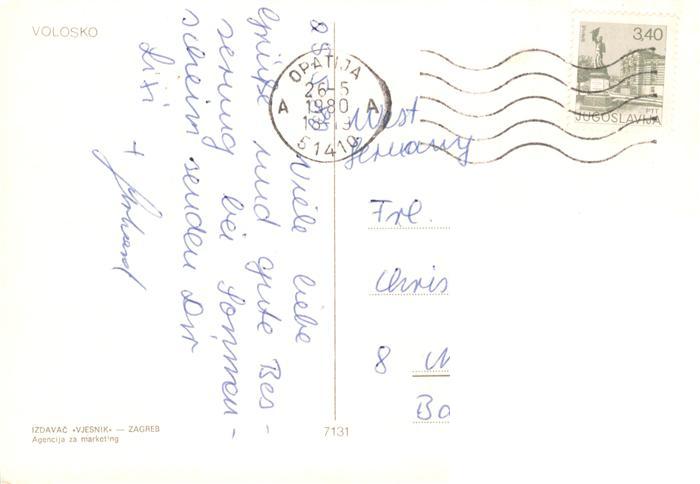 VOLOSKO
Viele liebe
Grüße und gute Bes-
serung bei Sonnen-
schein senden Dir
Lisi
+
OPATIJA
26-5
1980
A A
51410
3,40
PTT
JUGOSLAVIJA
West
Germany
Frl.
Chris
8
Ba
IZDAVAČ »VJESNIK« — ZAGREB
Agencija za marketing
7131